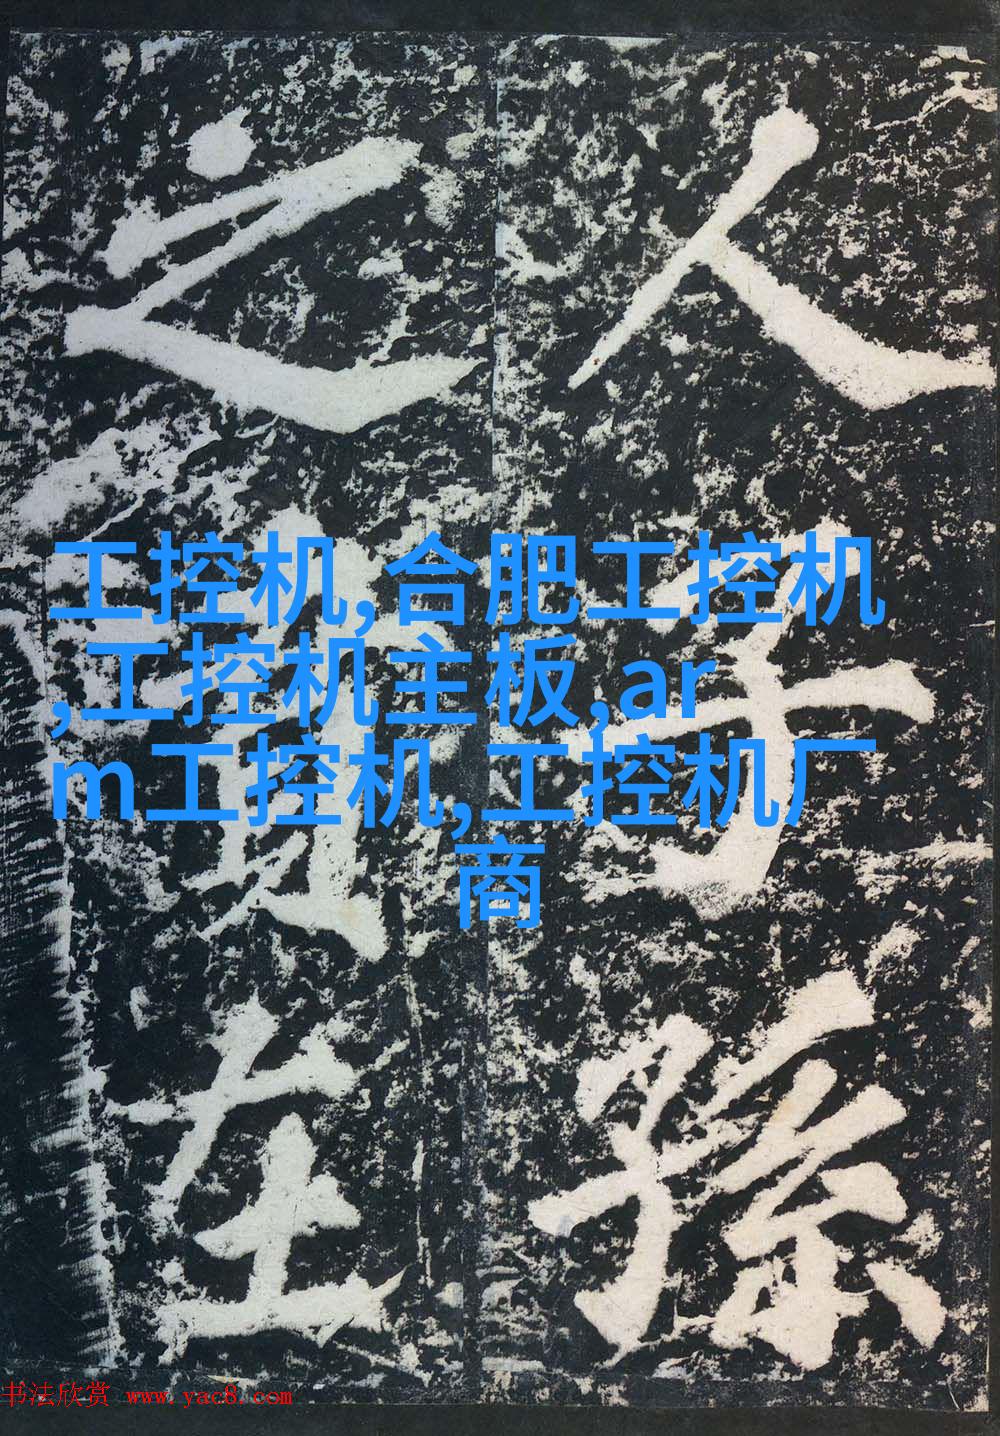 人子孫
之
在
工控机,合肥工控机
,工控机主板,ar
m工控机,工控机厂
商
书法欣赏 www.yac8.com